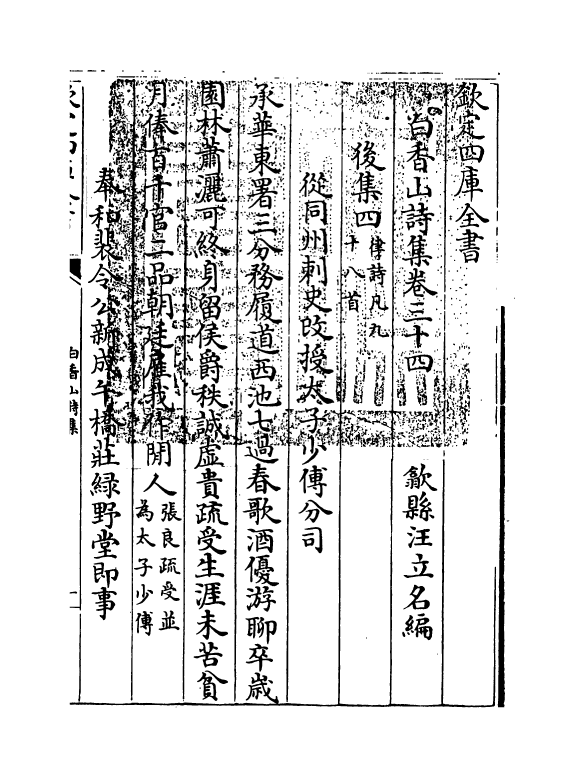 欽定四庫全書
白香山詩集卷三十四
歙縣汪立名編
後集四
律詩凡九
十八首
從同州刺史改授太子少傅分司
承華東署三分務履道西池七過春歌酒優游聊卒歳
園林蕭灑可終身留侯爵秩誠虛貴疏受生涯未苦貧
月俸百千官二品朝廷雇我作閒人
張良疏受並
為太子少傅
奉和裴令公新成午橋莊緑野堂即事
白香山詩集